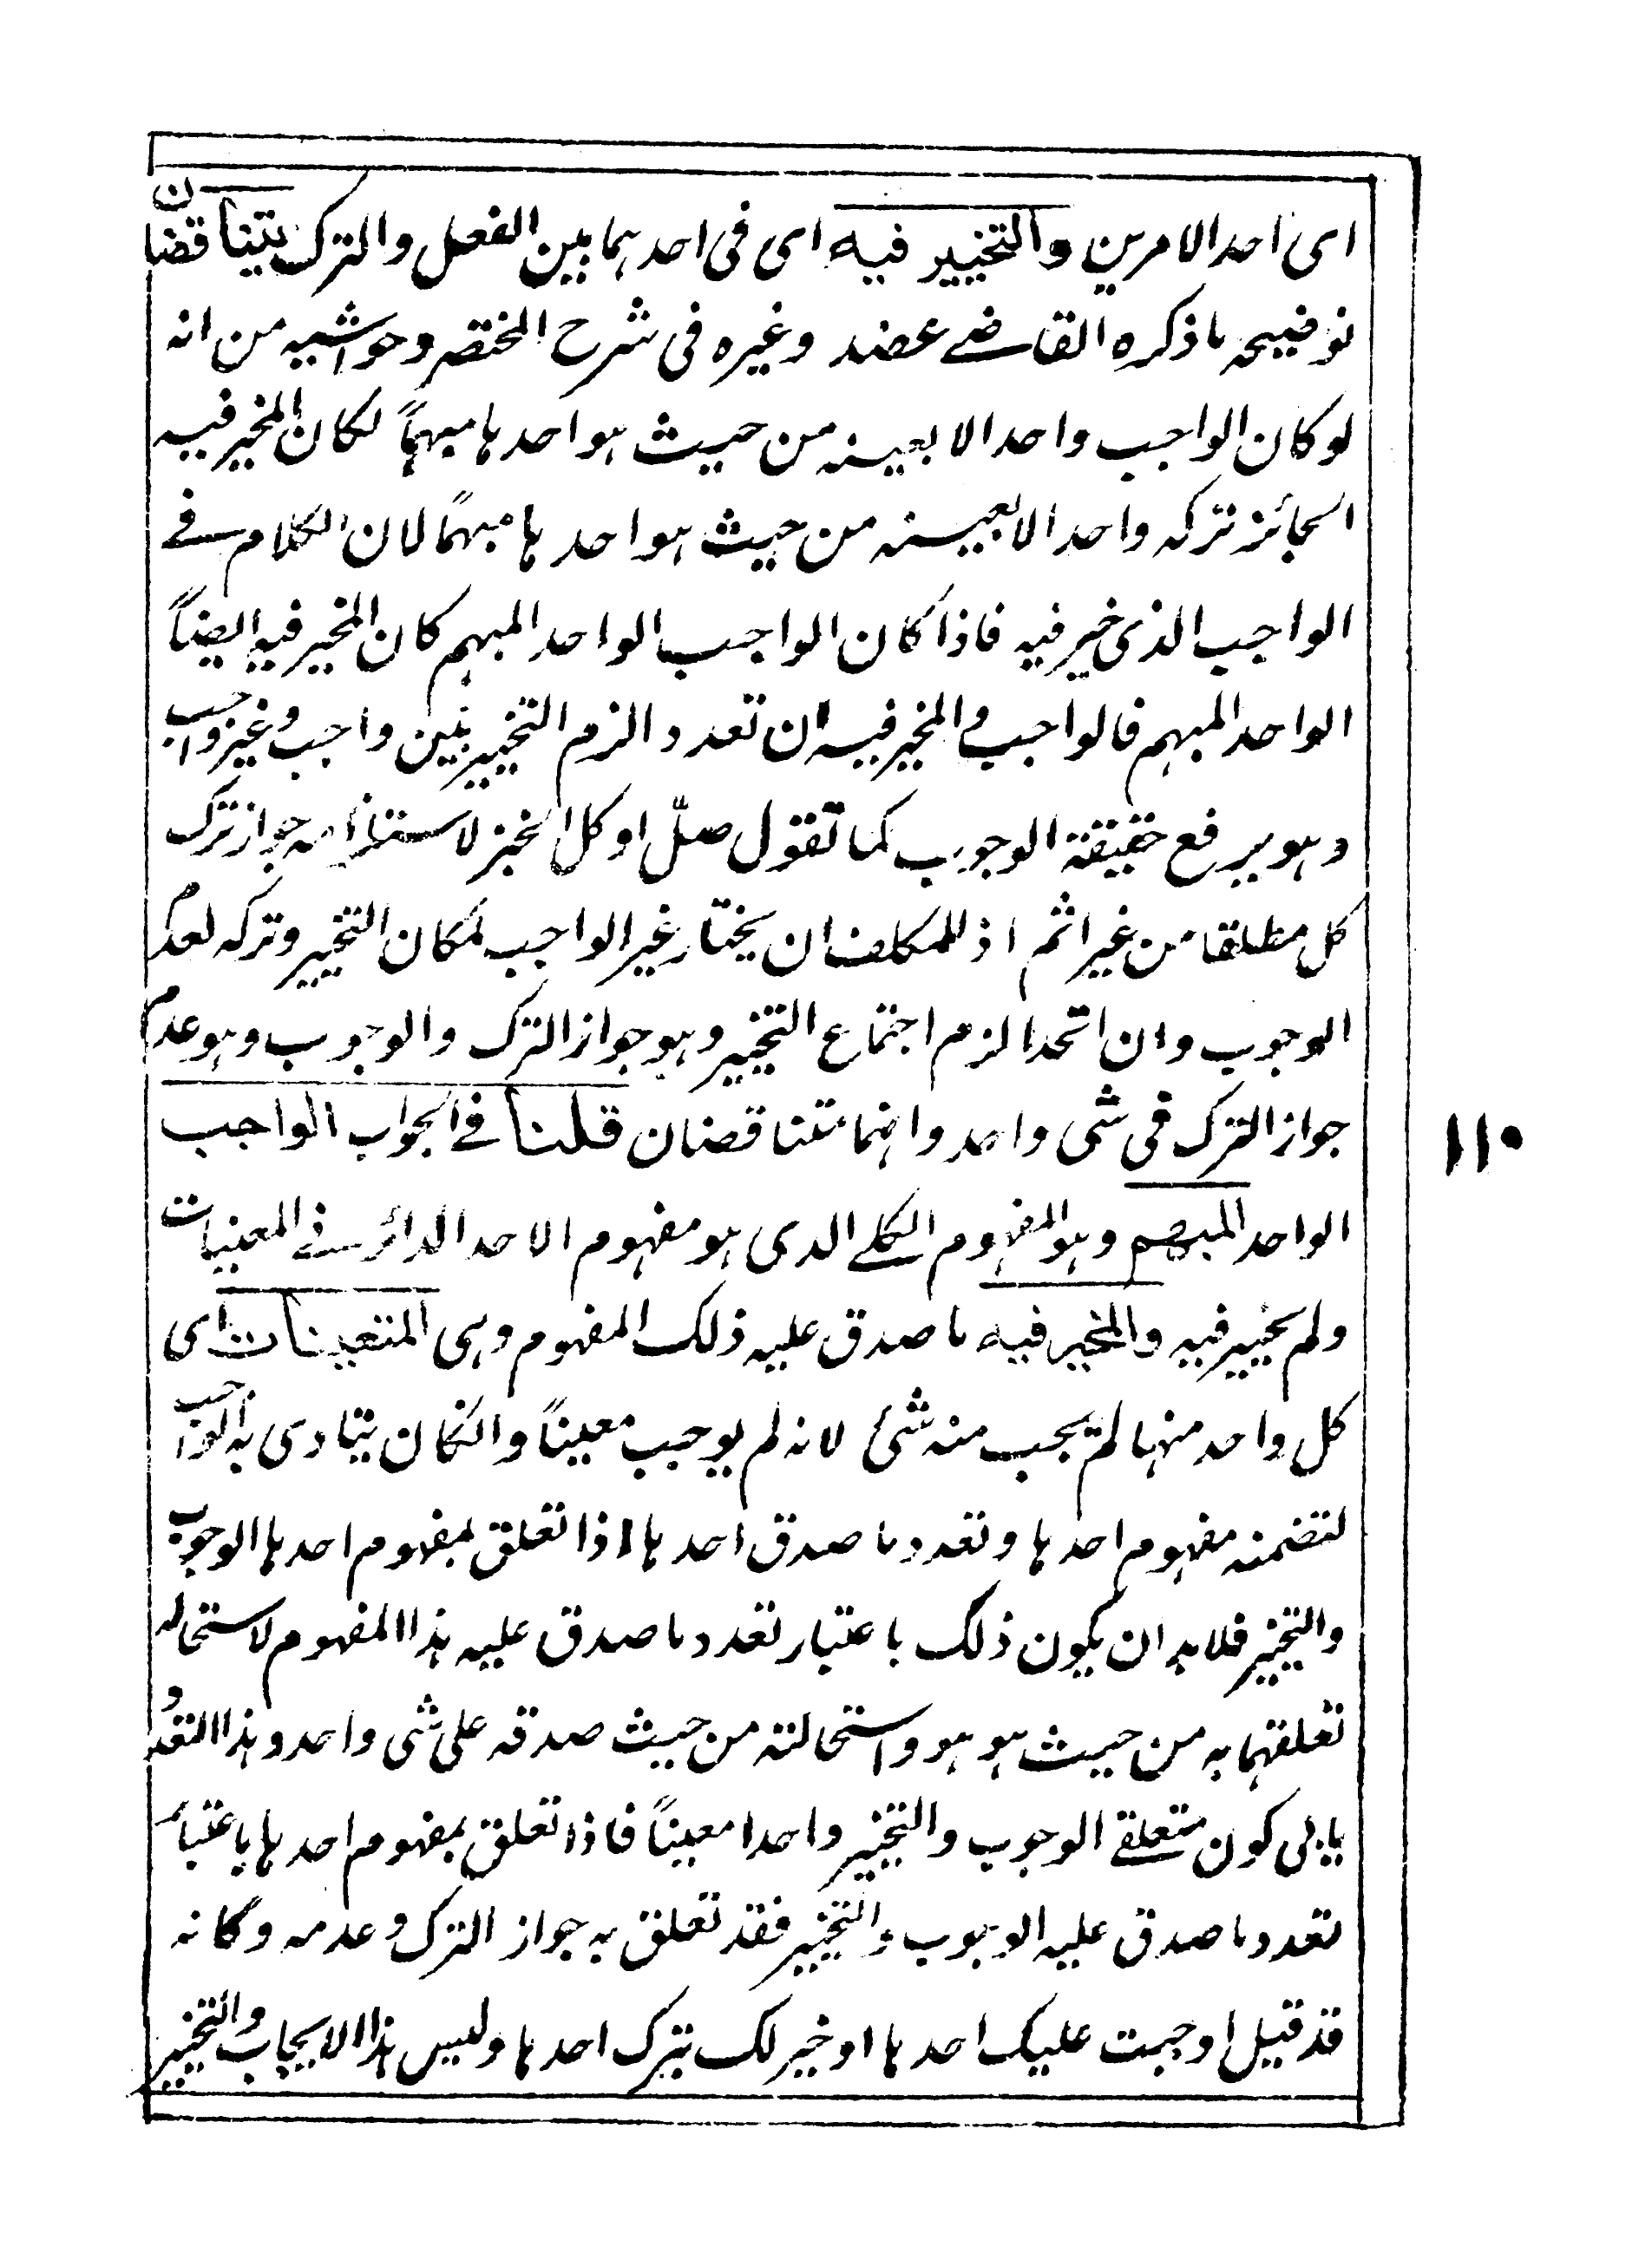 اى احد الامرين والتخيير فيه اى فى احدہما بين الفعل والترك يتناقضان
توضيحه ما ذكره القاضے عضد وغيره فى شرح المختصر وحواشيه من انه
لو كان الواجب واحدا لا بعينه من حيث ہو احدہا مبہماً لكان المخير فيه
الجائز تركه واحدا لا بعينه من حيث ہو احدہا مبہمًا لان الكلام فے
الواجب الذى خير فيه فاذا كان الواجب الواحد المبہم كان المخير فيه ايضاً
الواحد المبہم فالواجب والمخير فيه ان تعددا لزم التخيير بين واجب وغير واجب
وہو يرفع حقيقة الوجوب كما تقول صلّ او كل الخبز لاستلزامه جواز ترك
كل مطلقا من غير اثم اذ للمكلف ان يختار غير الواجب لمكان التخيير وتركه لعدم
الوجوب وان اتحدا لزم اجتماع التخيير وہو جواز الترك والوجوب وہو عدم
جواز الترك فى شى واحد وانہما متناقضان قلنا فے الجواب الواجب
الواحد المبہم وہو المفہوم الكلے الدى ہو مفہوم الاحد الدائر فے المعنيات
ولم يخير فيه والمخير فيه ما صدق عليه ذلك المفہوم وہى المتعينات اى
كل واحد منہا لم يجب منه شئ لانه لم يوجب معيناً والنكان يتادى به الواجب
لتضمنه مفہوم احدہا وتعدد ما صدق احدہا اذا تعلق بمفہوم احدہا الوجوب
والتخيير فلا بد ان يكون ذلك باعتبار تعدد ما صدق عليه ہذا المفہوم لاستحالة
تعلقہما به من حيث ہو ہو واستحالته من حيث صدقه على شى واحد وہذا التعدد
يابى كون متعلقے الوجوب والتخيير واحدا معيناً فاذا تعلق بمفہوم احدہا باعتبار
تعدد ما صدق عليه الوجوب والتخيير فقد تعلق به جواز الترك وعدمه وكانه
قد قيل اوجبت عليك احدہا او خير لك بترك احدہا وليس ہذا الايجاب والتخيير
١١٠